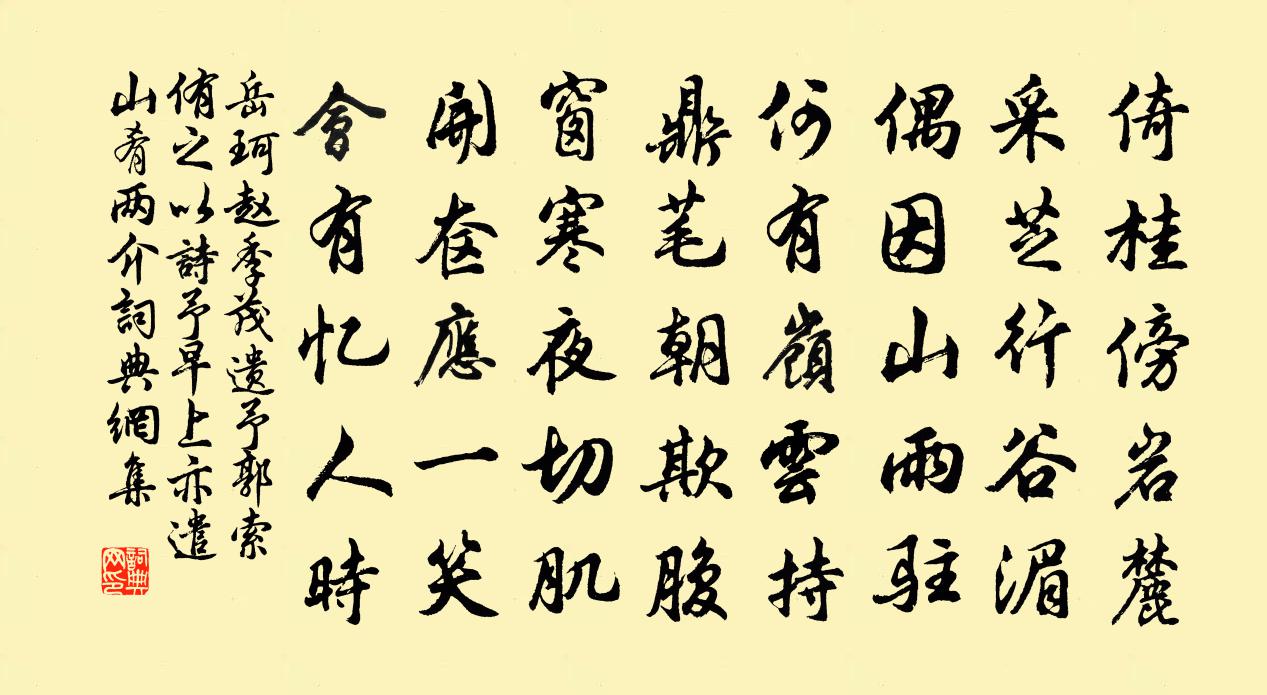 倚桂傍岩麓
采芝行谷湄
偶因山雨駐
何有嶺雲持
鼎芼朝欺腹
窗寒夜切肌
開奁應一笑
會有忆人時
岳珂赵季茂遗予郭索
侑之以詩予早上亦遣
山肴两介詞典網集
詞典网印